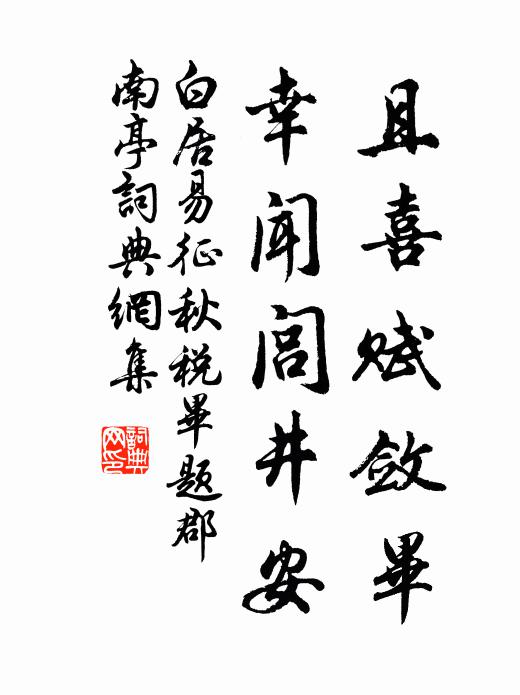 且喜赋斂畢
幸聞閭井安
白居易征秋税畢題郡
南亭詞典網集
詞典
网印